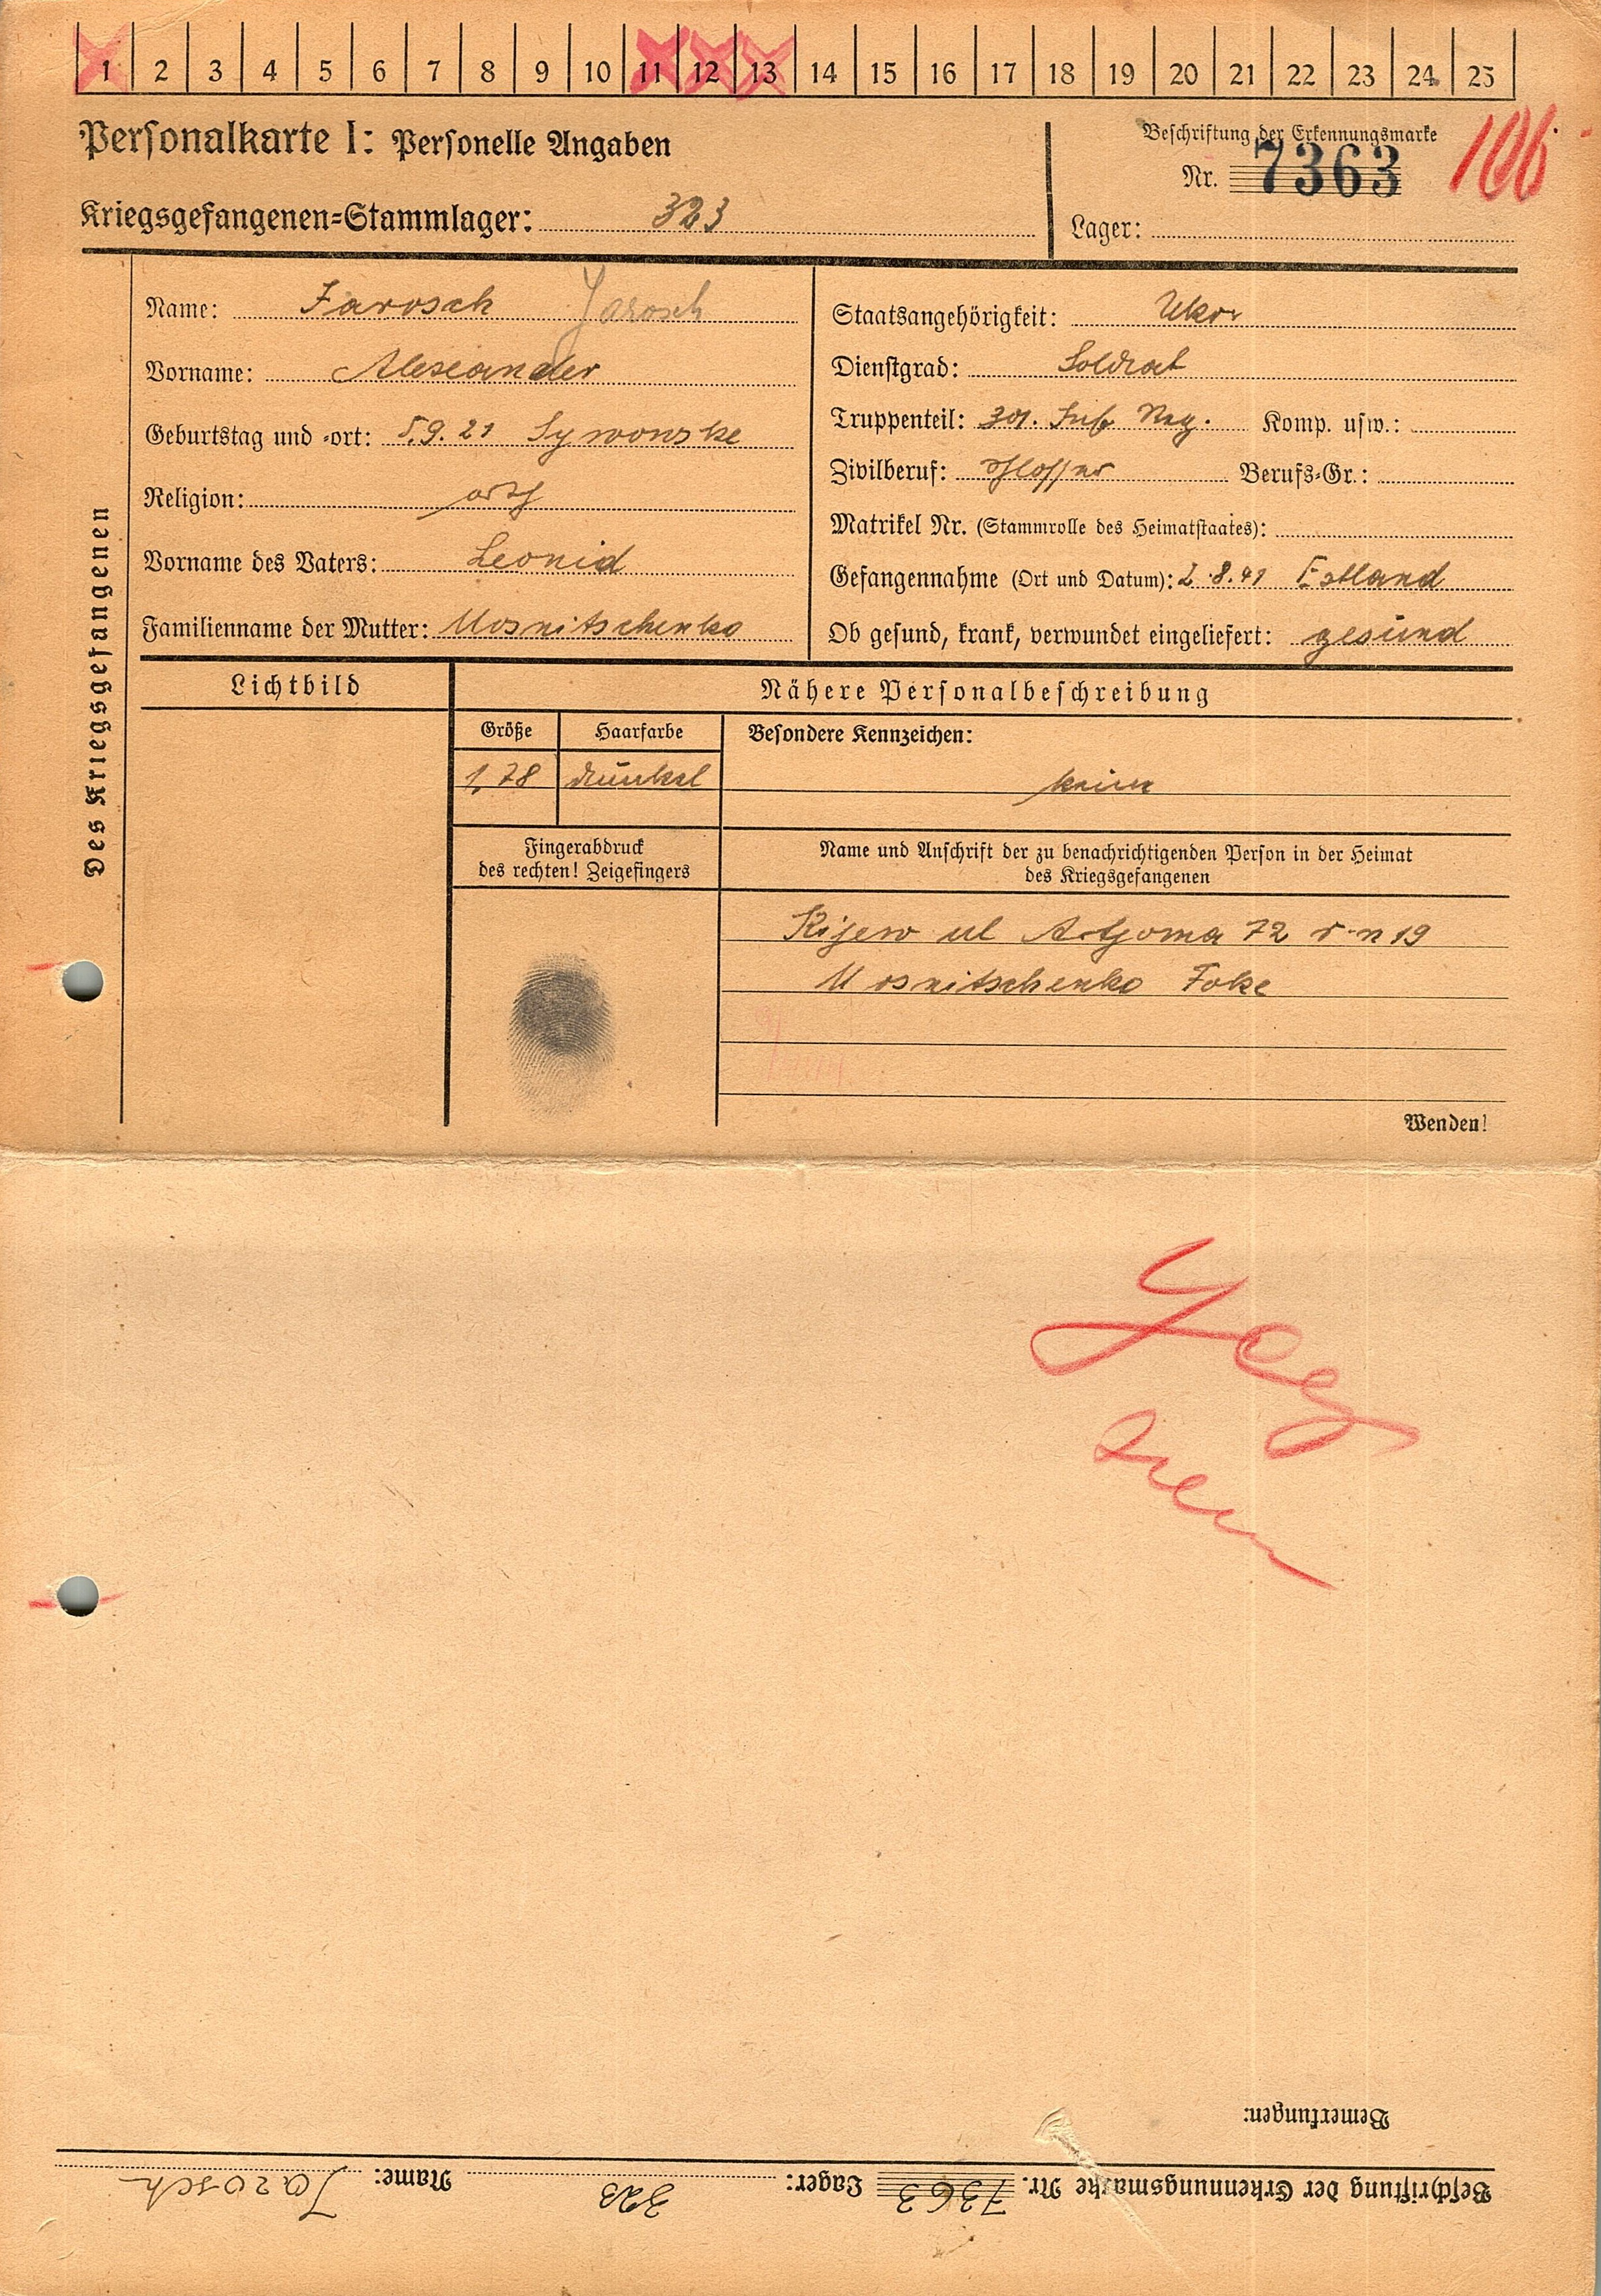 1 2 3 4 5 6 7 8 9 10 11 12 13 14 15 16 17 18 19 20 21 22 23 24 25
Personalkarte I: Personelle Angaben
Kriegsgefangenen=Stammlager: 323
Beschriftung der Erkennungsmarke
Nr. 7363
106
Lager:
Des Kriegsgefangenen
Name: Jarosch Jarosch
Vorname: Alexander
Geburtstag und =ort: 5.9.21 Sywonske
Religion: orth
Vorname des Vaters: Leonid
Familienname der Mutter: Mosnitschenko
Staatsangehörigkeit: Ukr
Dienstgrad: Soldat
Truppenteil: 301. Inf. Reg. Komp. usw.:
Zivilberuf: Schlosser Berufs=Gr.:
Matrikel Nr. (Stammrolle des Heimatstaates):
Gefangennahme (Ort und Datum): 2.8.41 Estland
Ob gesund, krank, verwundet eingeliefert: gesund
Lichtbild
Nähere Personalbeschreibung
Größe Haarfarbe Besondere Kennzeichen:
1,78 dunkel keine
Fingerabdruck
des rechten! Zeigefingers
Name und Anschrift der zu benachrichtigenden Person in der Heimat
des Kriegsgefangenen
Kijew ul Artjoma 72 19
Mosnitschenko Foke
Wenden!
Bemerkungen:
Beschriftung der Erkennungsmarke Nr. 7363 Lager: 323 Name: Jarosch